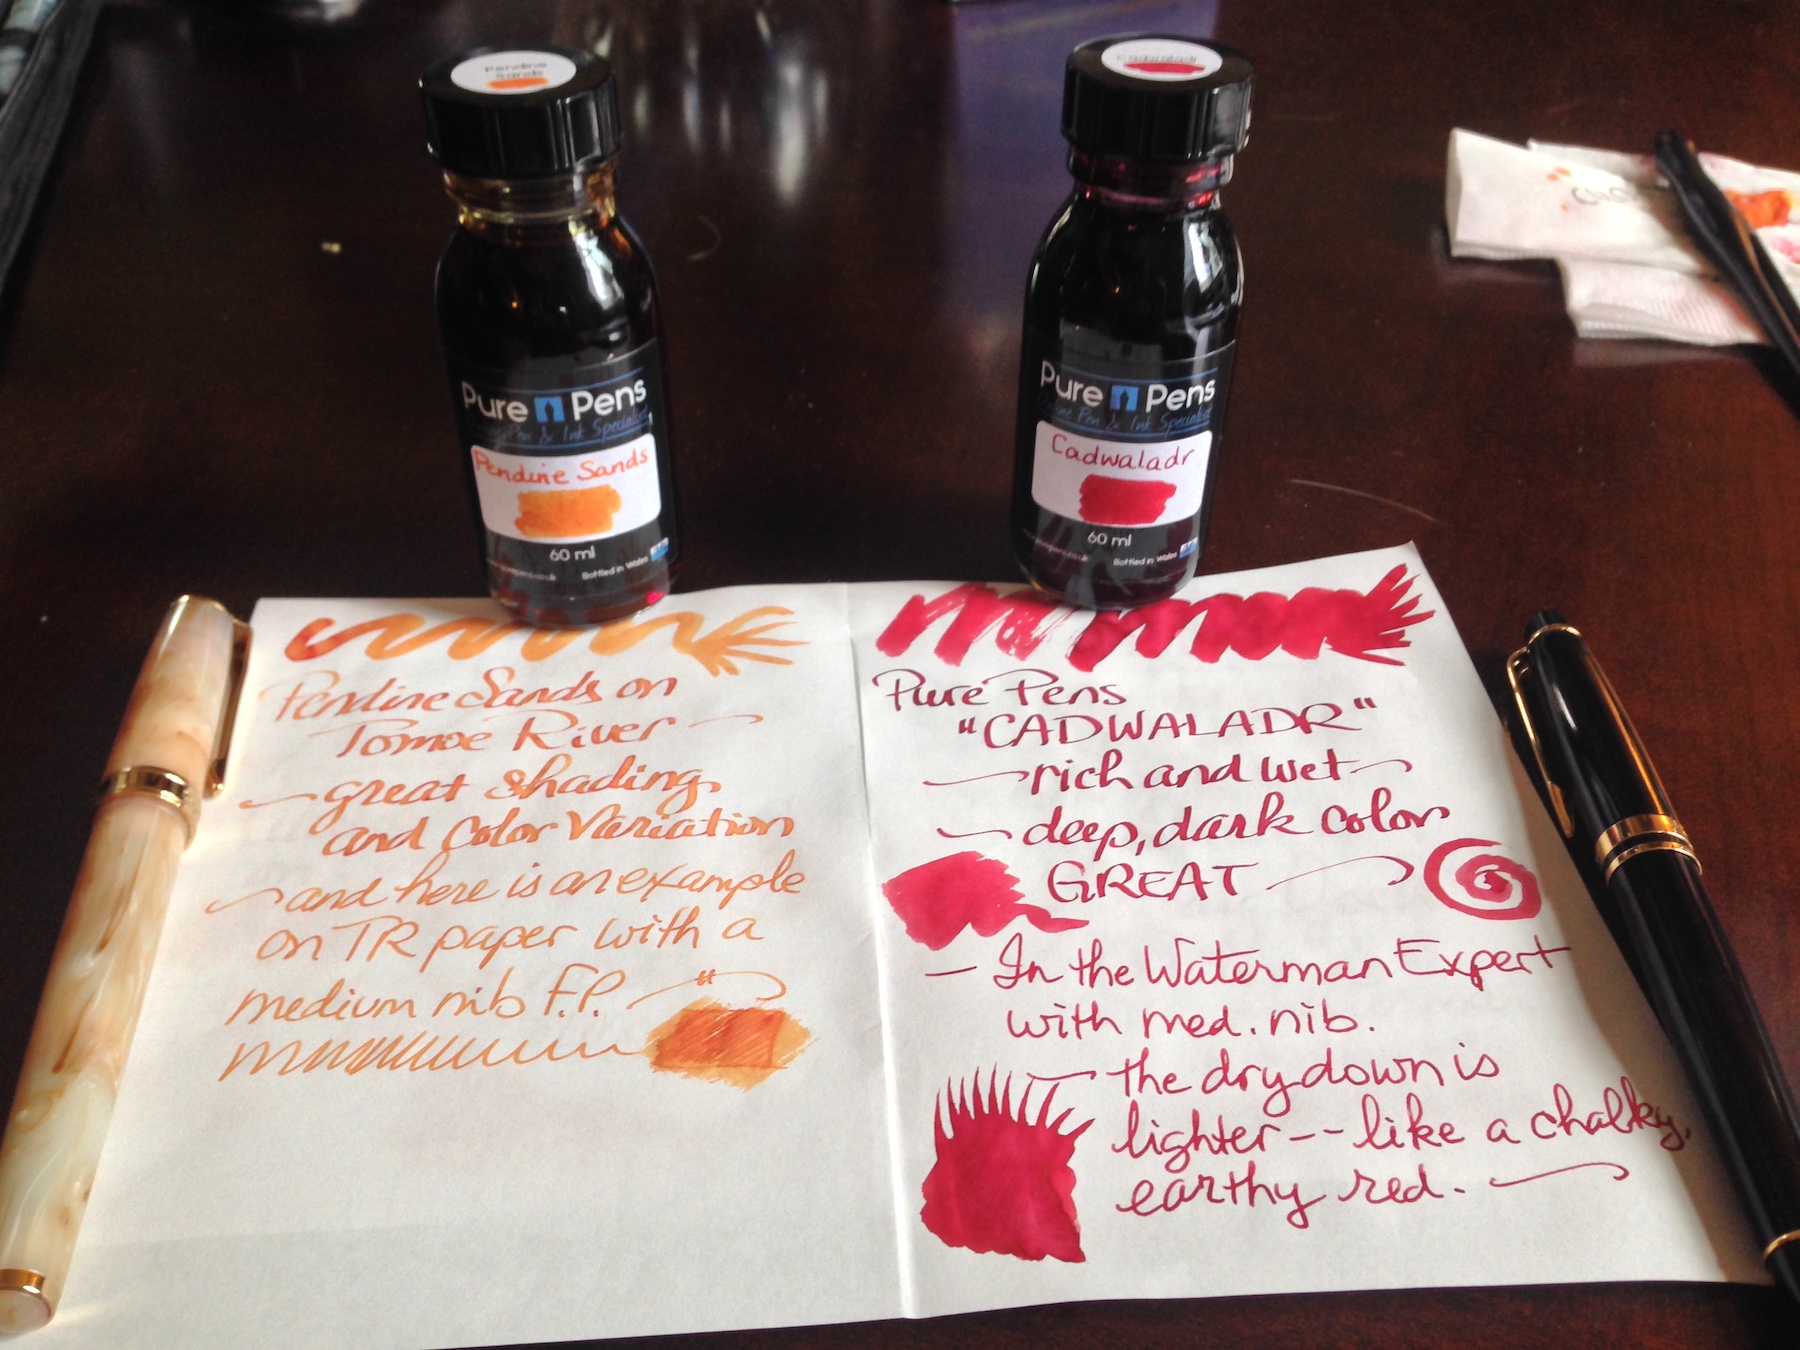 Pendine
Sands
Cadwaladr
Pure Pens
Pen & Ink Specialist
Pendine Sands
60 ml
Bottled in Wales
Pure Pens
Pen & Ink Specialist
Cadwaladr
60 ml
Bottled in Wales
Pendine Sands on
Tomoe River —
— great shading
and Color Variation
— and here is an example
on TR paper with a
medium nib F.P. —
Pure Pens
"CADWALADR"
— rich and wet —
— deep, dark color
GREAT —
— In the Waterman Expert
with med. nib.
— the dry down is
lighter -- like a chalky,
earthy red. —